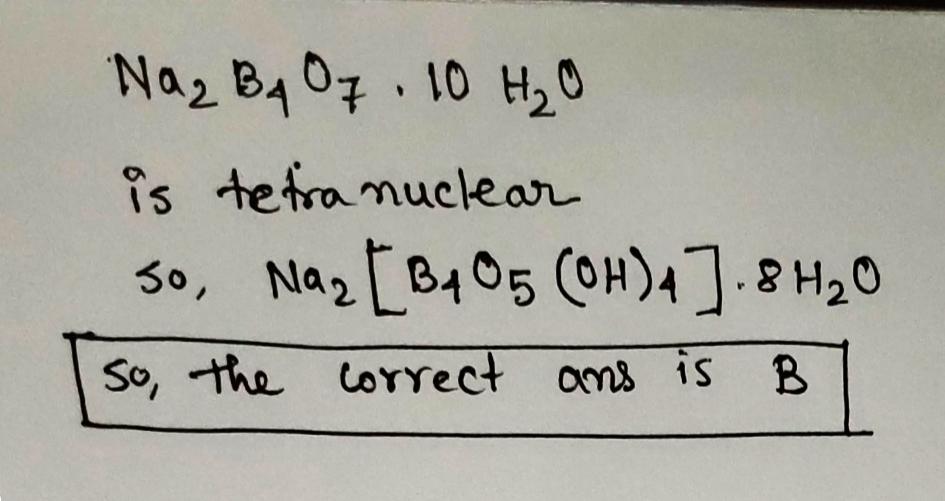 Na2 B4 O7 . 10 H2O
is tetranuclear
so, Na2 [ B4 O5 (OH)4 ] . 8 H2O
so, the correct ans is B